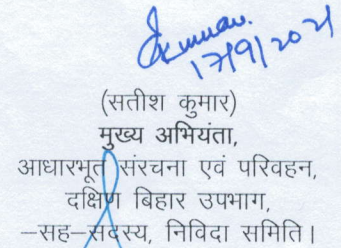 17/9/2021
(सतीश कुमार)
मुख्य अभियंता,
आधारभूत संरचना एवं परिवहन,
दक्षिण बिहार उपभाग,
–सह–सदस्य, निविदा समिति।